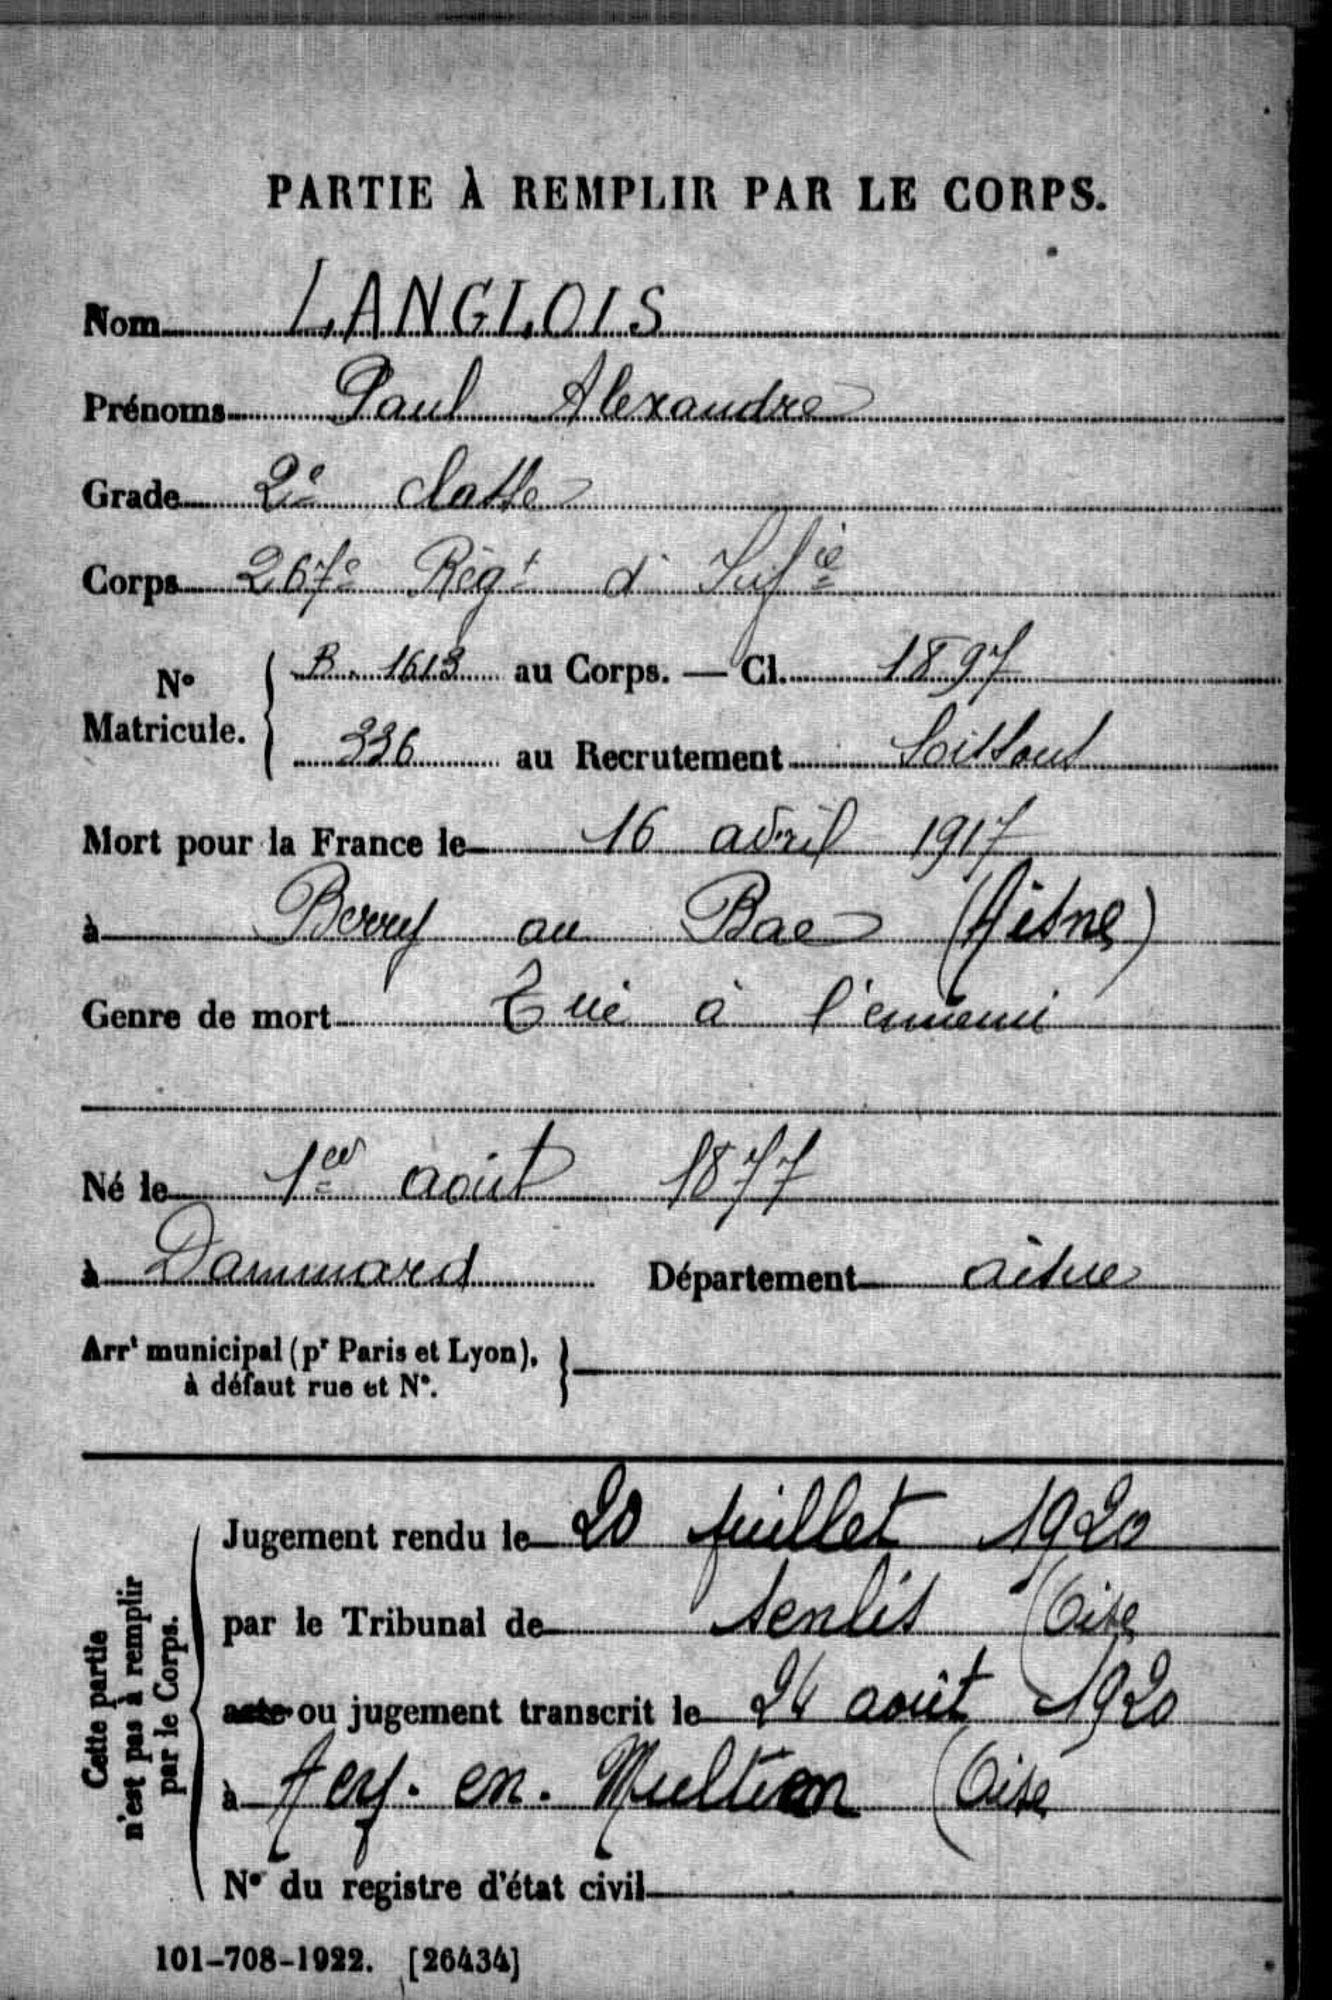 PARTIE À REMPLIR PAR LE CORPS.
Nom LANGLOIS
Prénoms Paul Alexandre
Grade 2e classe
Corps 267e Régt d'Infie
No Matricule. B. 1613 au Corps. — Cl. 1897
336 au Recrutement Soissons
Mort pour la France le 16 avril 1917
à Berry au Bac (Aisne)
Genre de mort Tué à l'ennemi
Né le 1er août 1877
à Dammard Département Aisne
Arrt municipal (pr Paris et Lyon),
à défaut rue et No.
Cette partie
n'est pas à remplir
par le Corps.
Jugement rendu le 20 juillet 1920
par le Tribunal de Senlis (Oise
acte ou jugement transcrit le 24 août 1920
à Acy. en. Multien (Oise
No du registre d'état civil
101-708-1922. [26434]